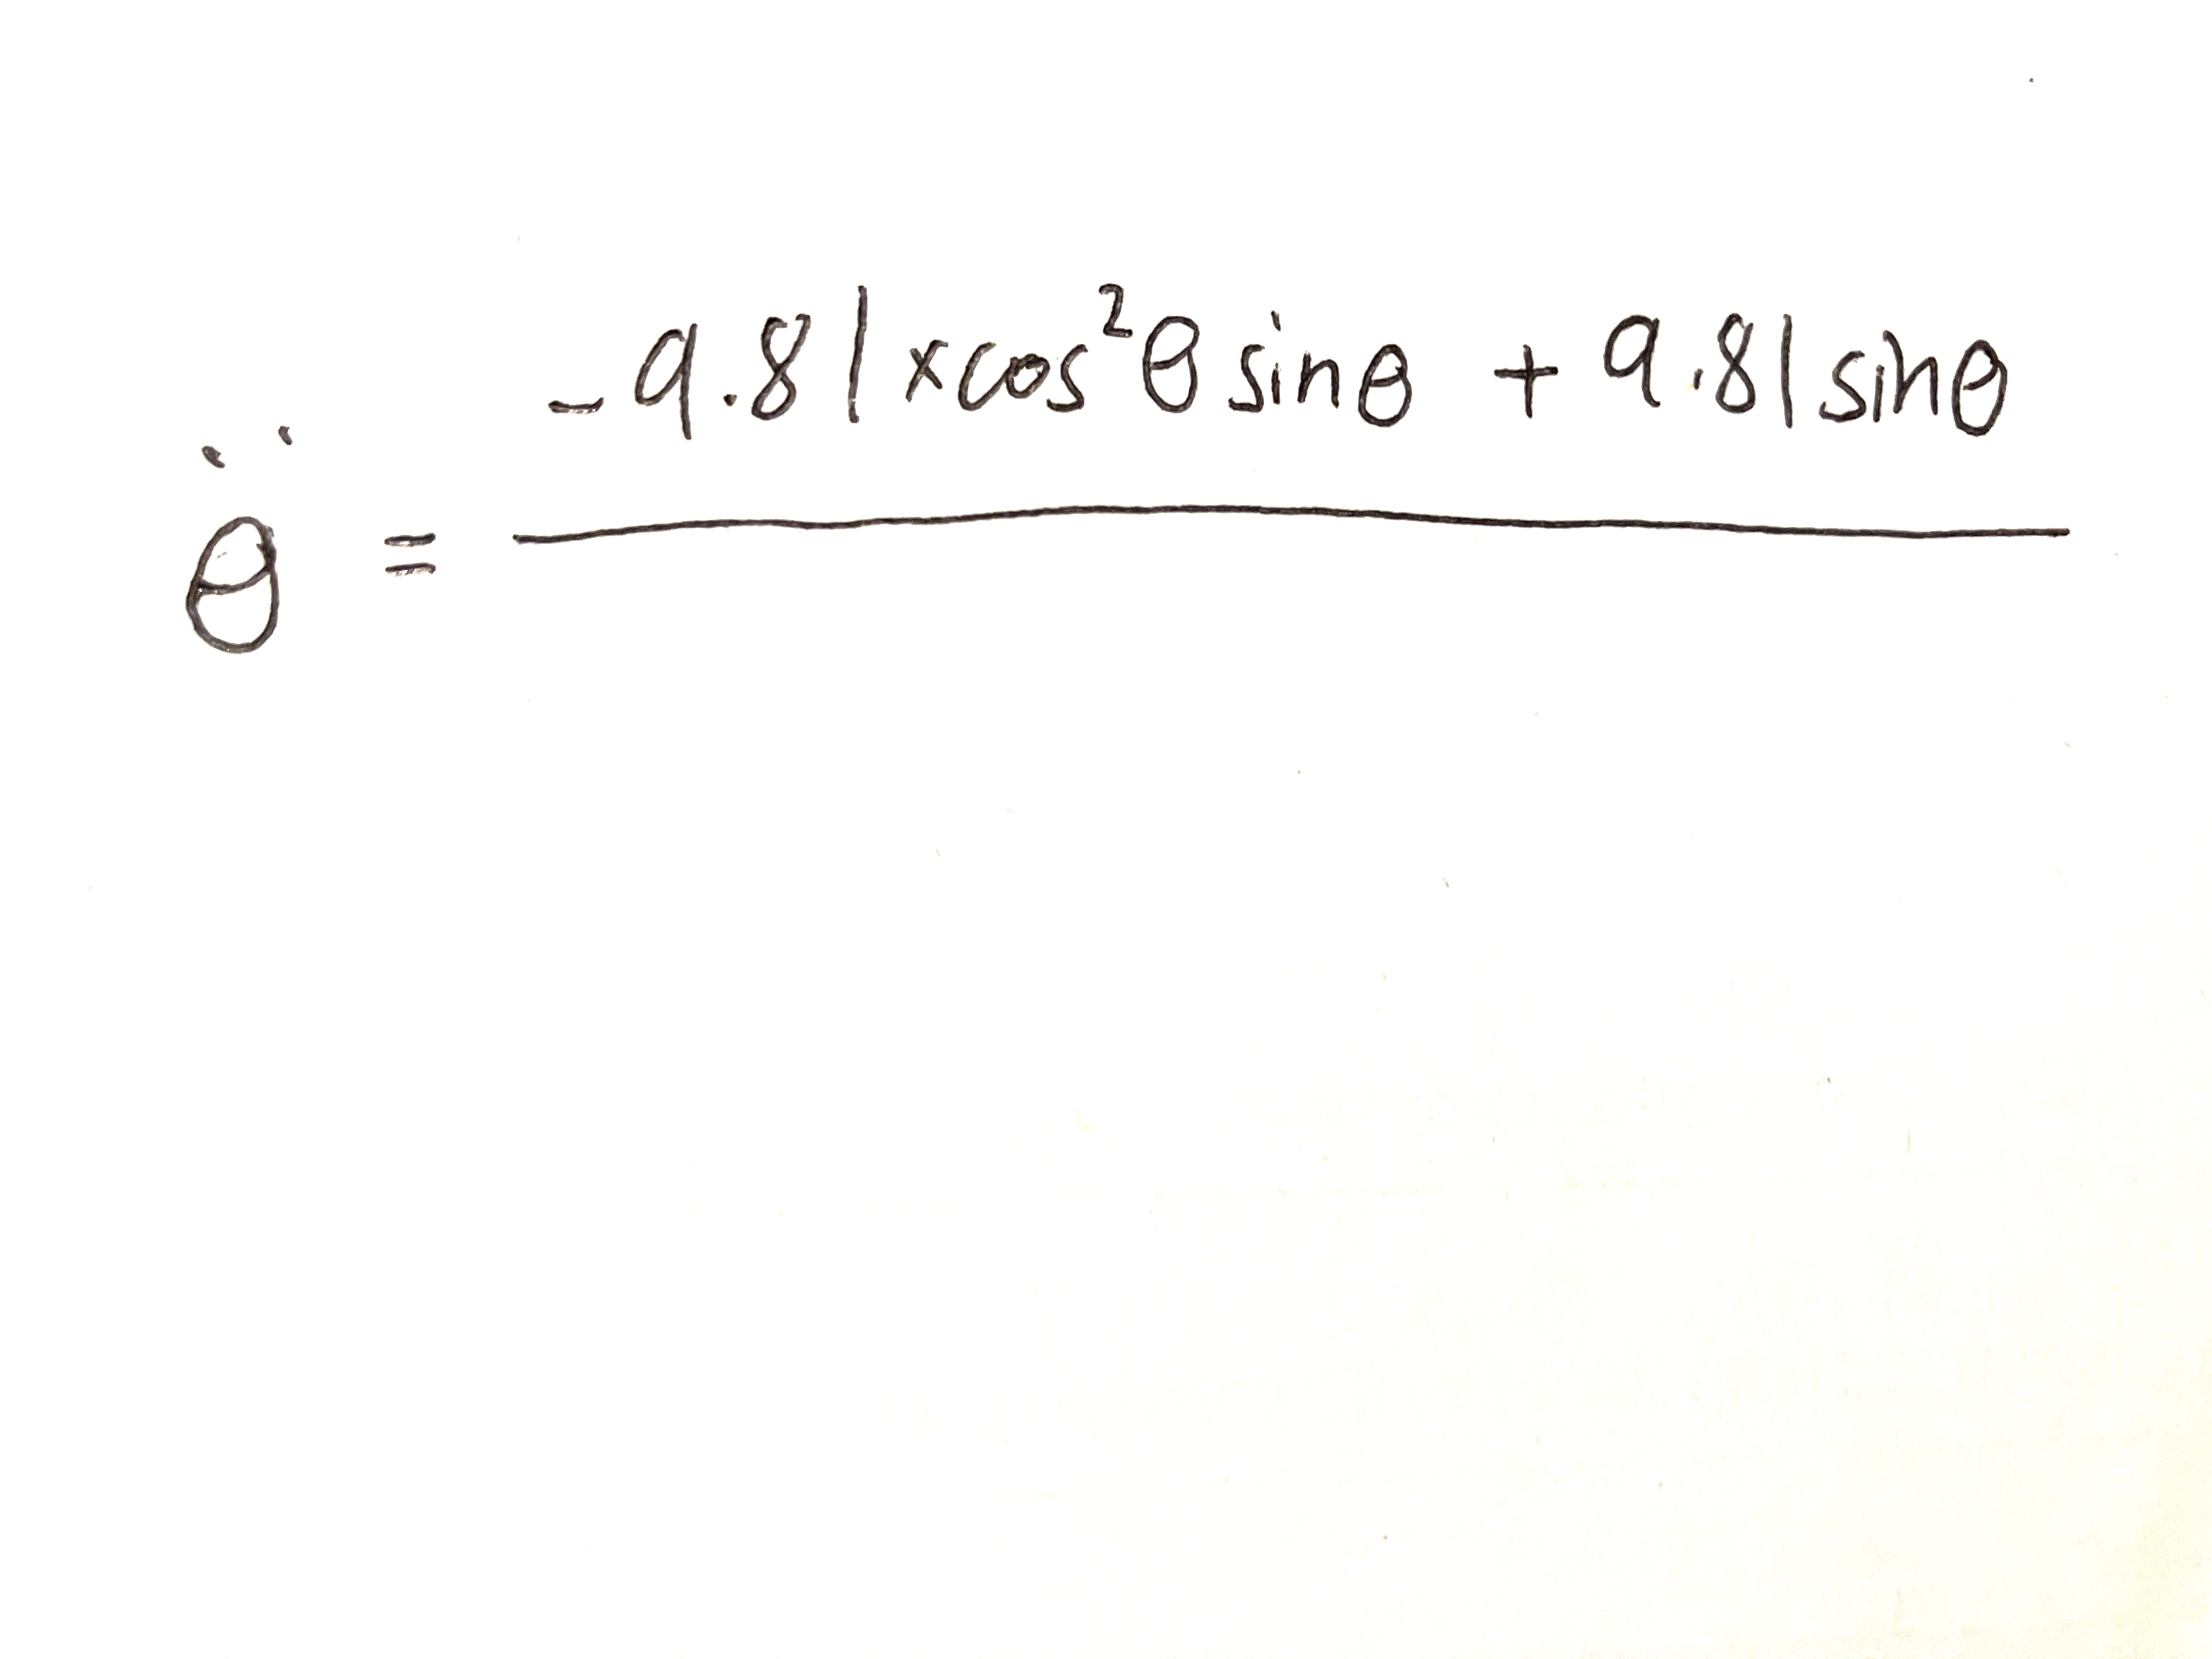 -9.81xcos²θ sinθ + 9.81sinθ
θ̈ =